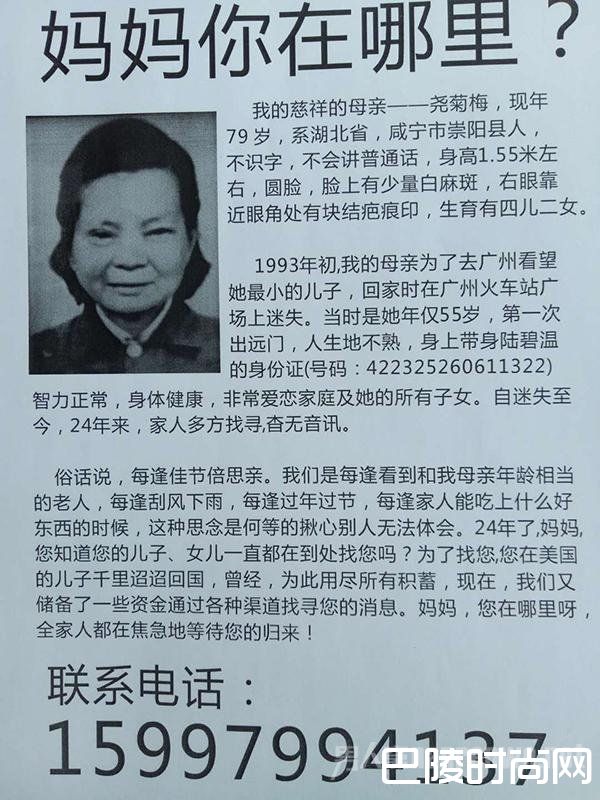 妈妈你在哪里？
我的慈祥的母亲——尧菊梅，现年
79岁，系湖北省，咸宁市崇阳县人，
不识字，不会讲普通话，身高1.55米左
右，圆脸，脸上有少量白麻斑，右眼靠
近眼角处有块结疤痕印，生育有四儿二女。
1993年初,我的母亲为了去广州看望
她最小的儿子，回家时在广州火车站广
场上迷失。当时是她年仅55岁，第一次
出远门，人生地不熟，身上带身陆碧温
的身份证(号码：422325260611322)
智力正常，身体健康，非常爱恋家庭及她的所有子女。自迷失至
今，24年来，家人多方找寻,杳无音讯。
俗话说，每逢佳节倍思亲。我们是每逢看到和我母亲年龄相当
的老人，每逢刮风下雨，每逢过年过节，每逢家人能吃上什么好
东西的时候，这种思念是何等的揪心别人无法体会。24年了,妈妈,
您知道您的儿子、女儿一直都在到处找您吗？为了找您,您在美国
的儿子千里迢迢回国，曾经，为此用尽所有积蓄，现在，我们又
储备了一些资金通过各种渠道找寻您的消息。妈妈，您在哪里呀，
全家人都在焦急地等待您的归来！
联系电话：
15997994137
巴陵时尚网